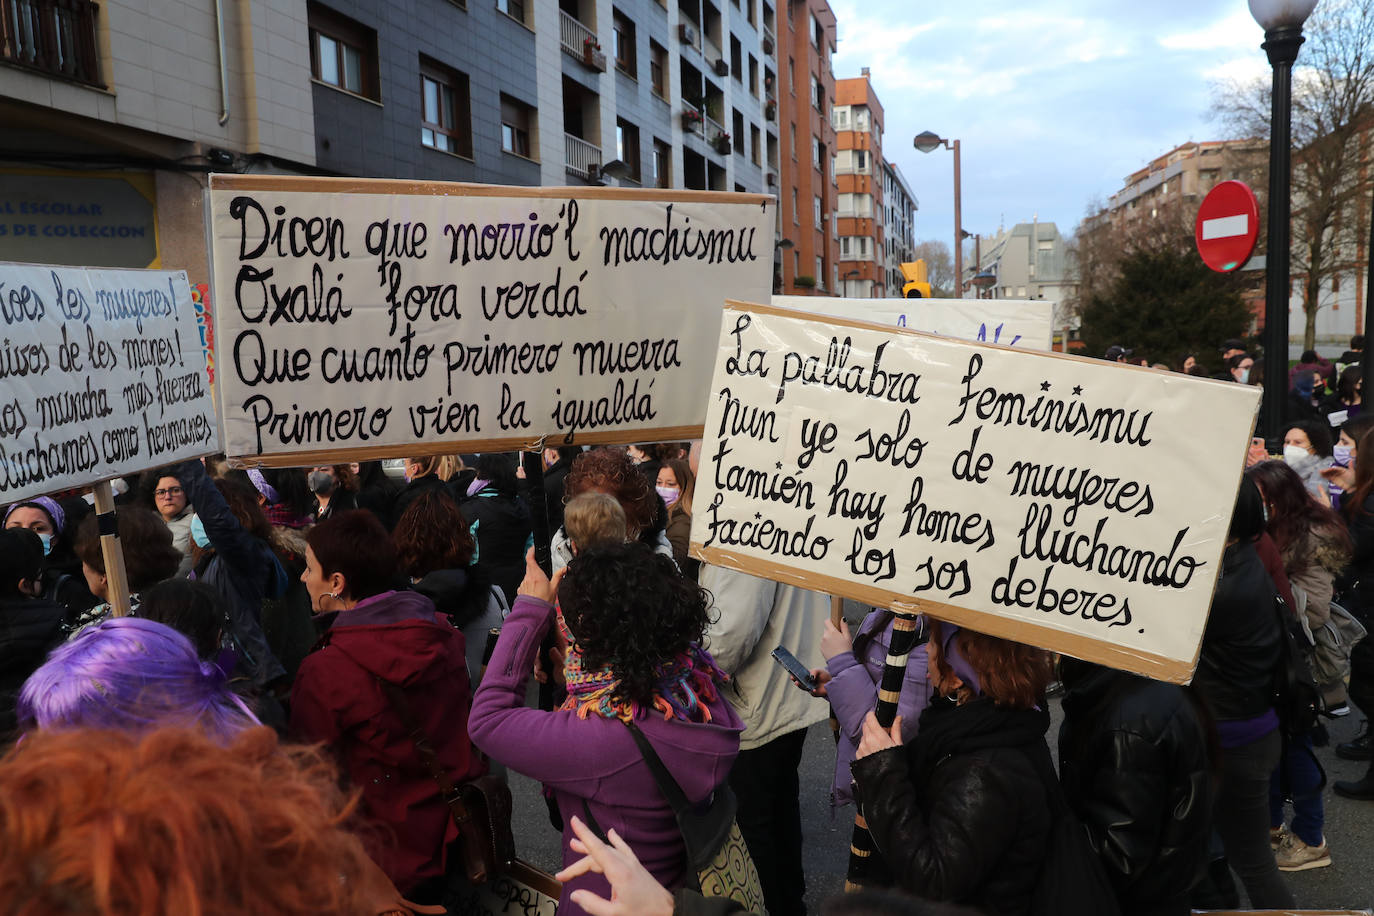 AL ESCOLAR
S DE COLECCION
toes les muyeres!
uivos de les manes!
os muncha mas fuerza
lluchamos como hermanes
Dicen que morrió'l machismu
Oxalá fora verdá
Que cuanto primero muerra
Primero vien la igualdá
La pallabra feminismu
nun ye solo de muyeres
tamién hay homes lluchando
faciendo los sos deberes.